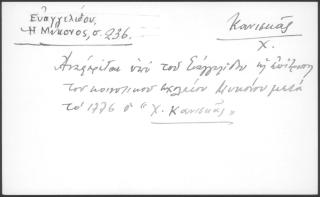 Εὐαγγελίδου,
Ἡ Μύκονος, σ. 236.
Κανισκᾶς
Χ.
Ἀναφέρεται ὑπὸ τοῦ Εὐαγγελίδου ὡς
τοῦ κοινοτικοῦ σχολείου Μυκόνου μετὰ
τὸ 1776 ὁ "Χ. Κανισκᾶς"